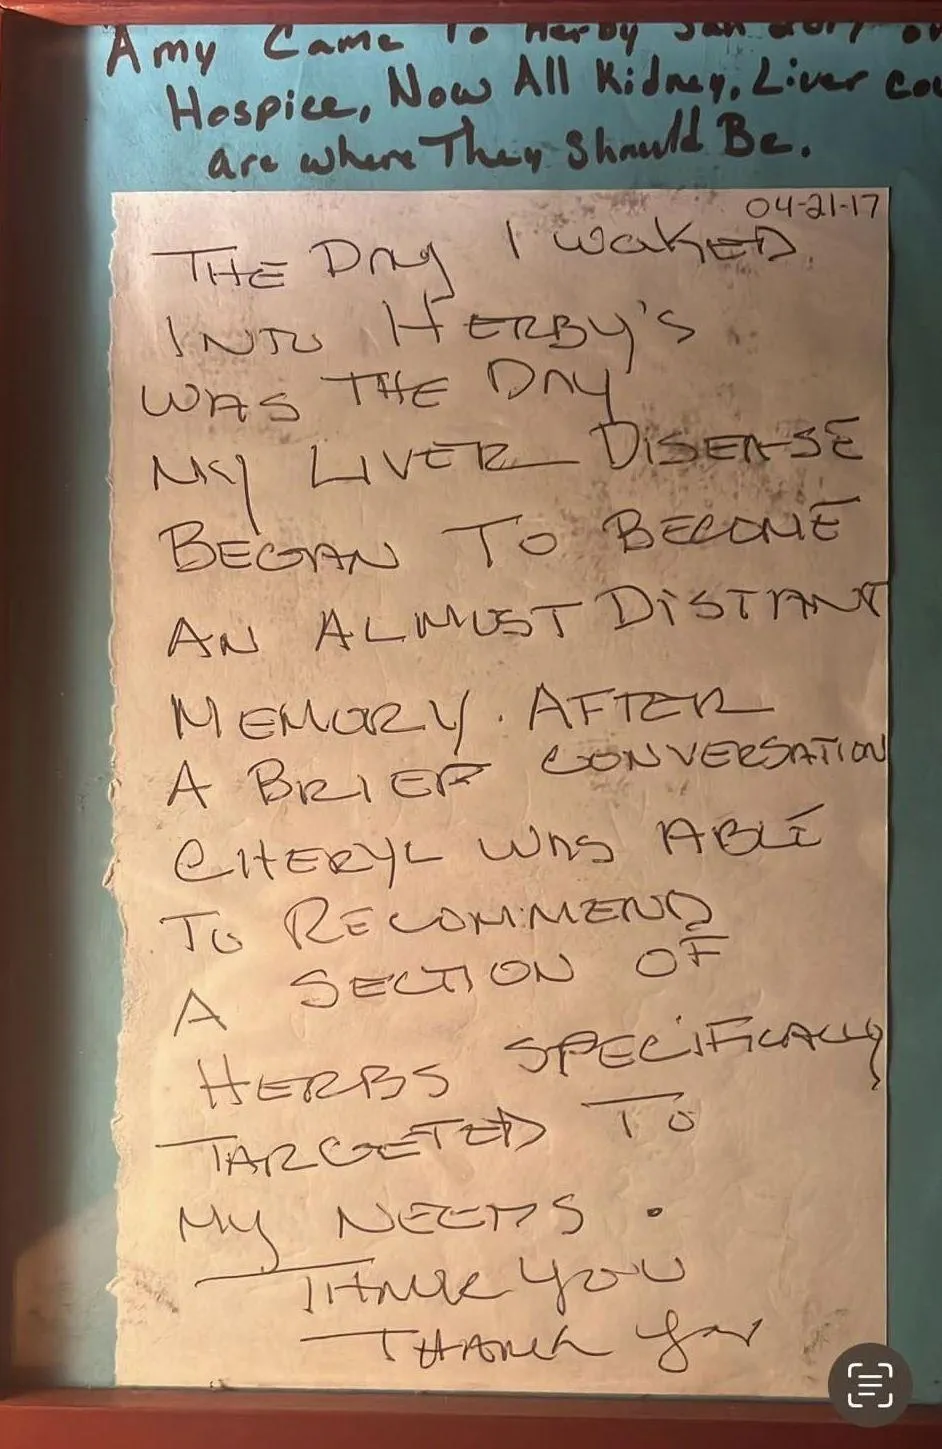 Amy Came To Herby
Hospice, Now All Kidney, Liver
are where They Should Be.
04-21-17
THE DAY I WAKED
INTO HERBY'S
WAS THE DAY
MY LIVER DISEASE
BEGAN TO BECOME
AN ALMOST DISTANT
MEMORY. AFTER
A BRIEF CONVERSATION
CHERYL WAS ABLE
TO RECOMMEND
A SECTION OF
HERBS SPECIFICALLY
TARGETED TO
MY NEEDS.
THANK YOU
THANK YOU